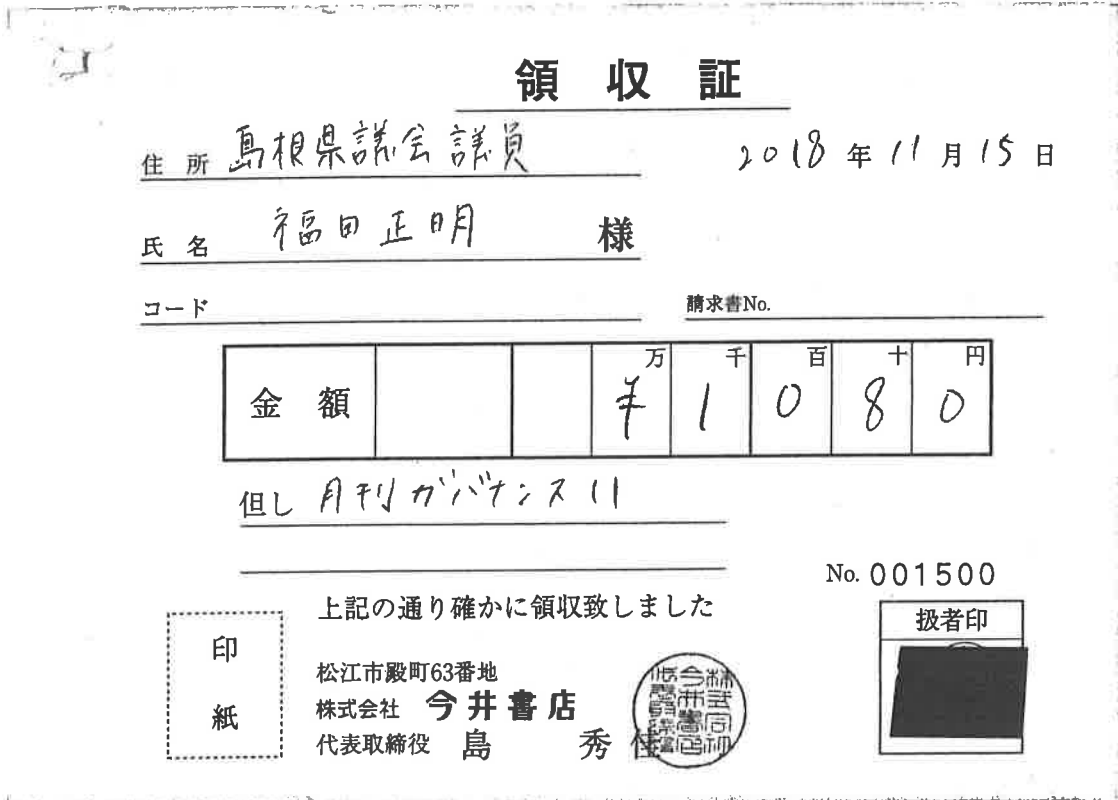 領収証
住所 島根県議会議員
2018年11月15日
氏名 福田正明 様
コード
請求書No.
金額 万 千 百 十 円
¥1080
但し 月刊ガバナンス11
No. 001500
上記の通り確かに領収致しました
印紙
扱者印
松江市殿町63番地
株式会社 今井書店
代表取締役 島 秀佳